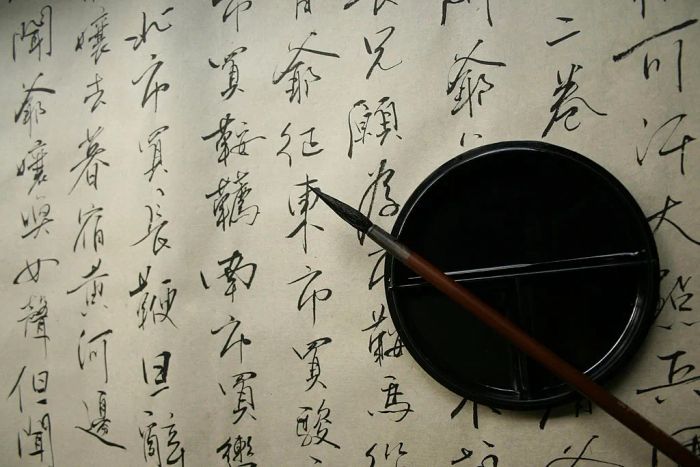 可汗大點兵
二卷
爺
兄願為市鞍馬
爺征東市買駿
市買鞍韉南市買轡
北市買長鞭旦辭
孃去暮宿黃河邊
聞爺孃喚女聲但聞